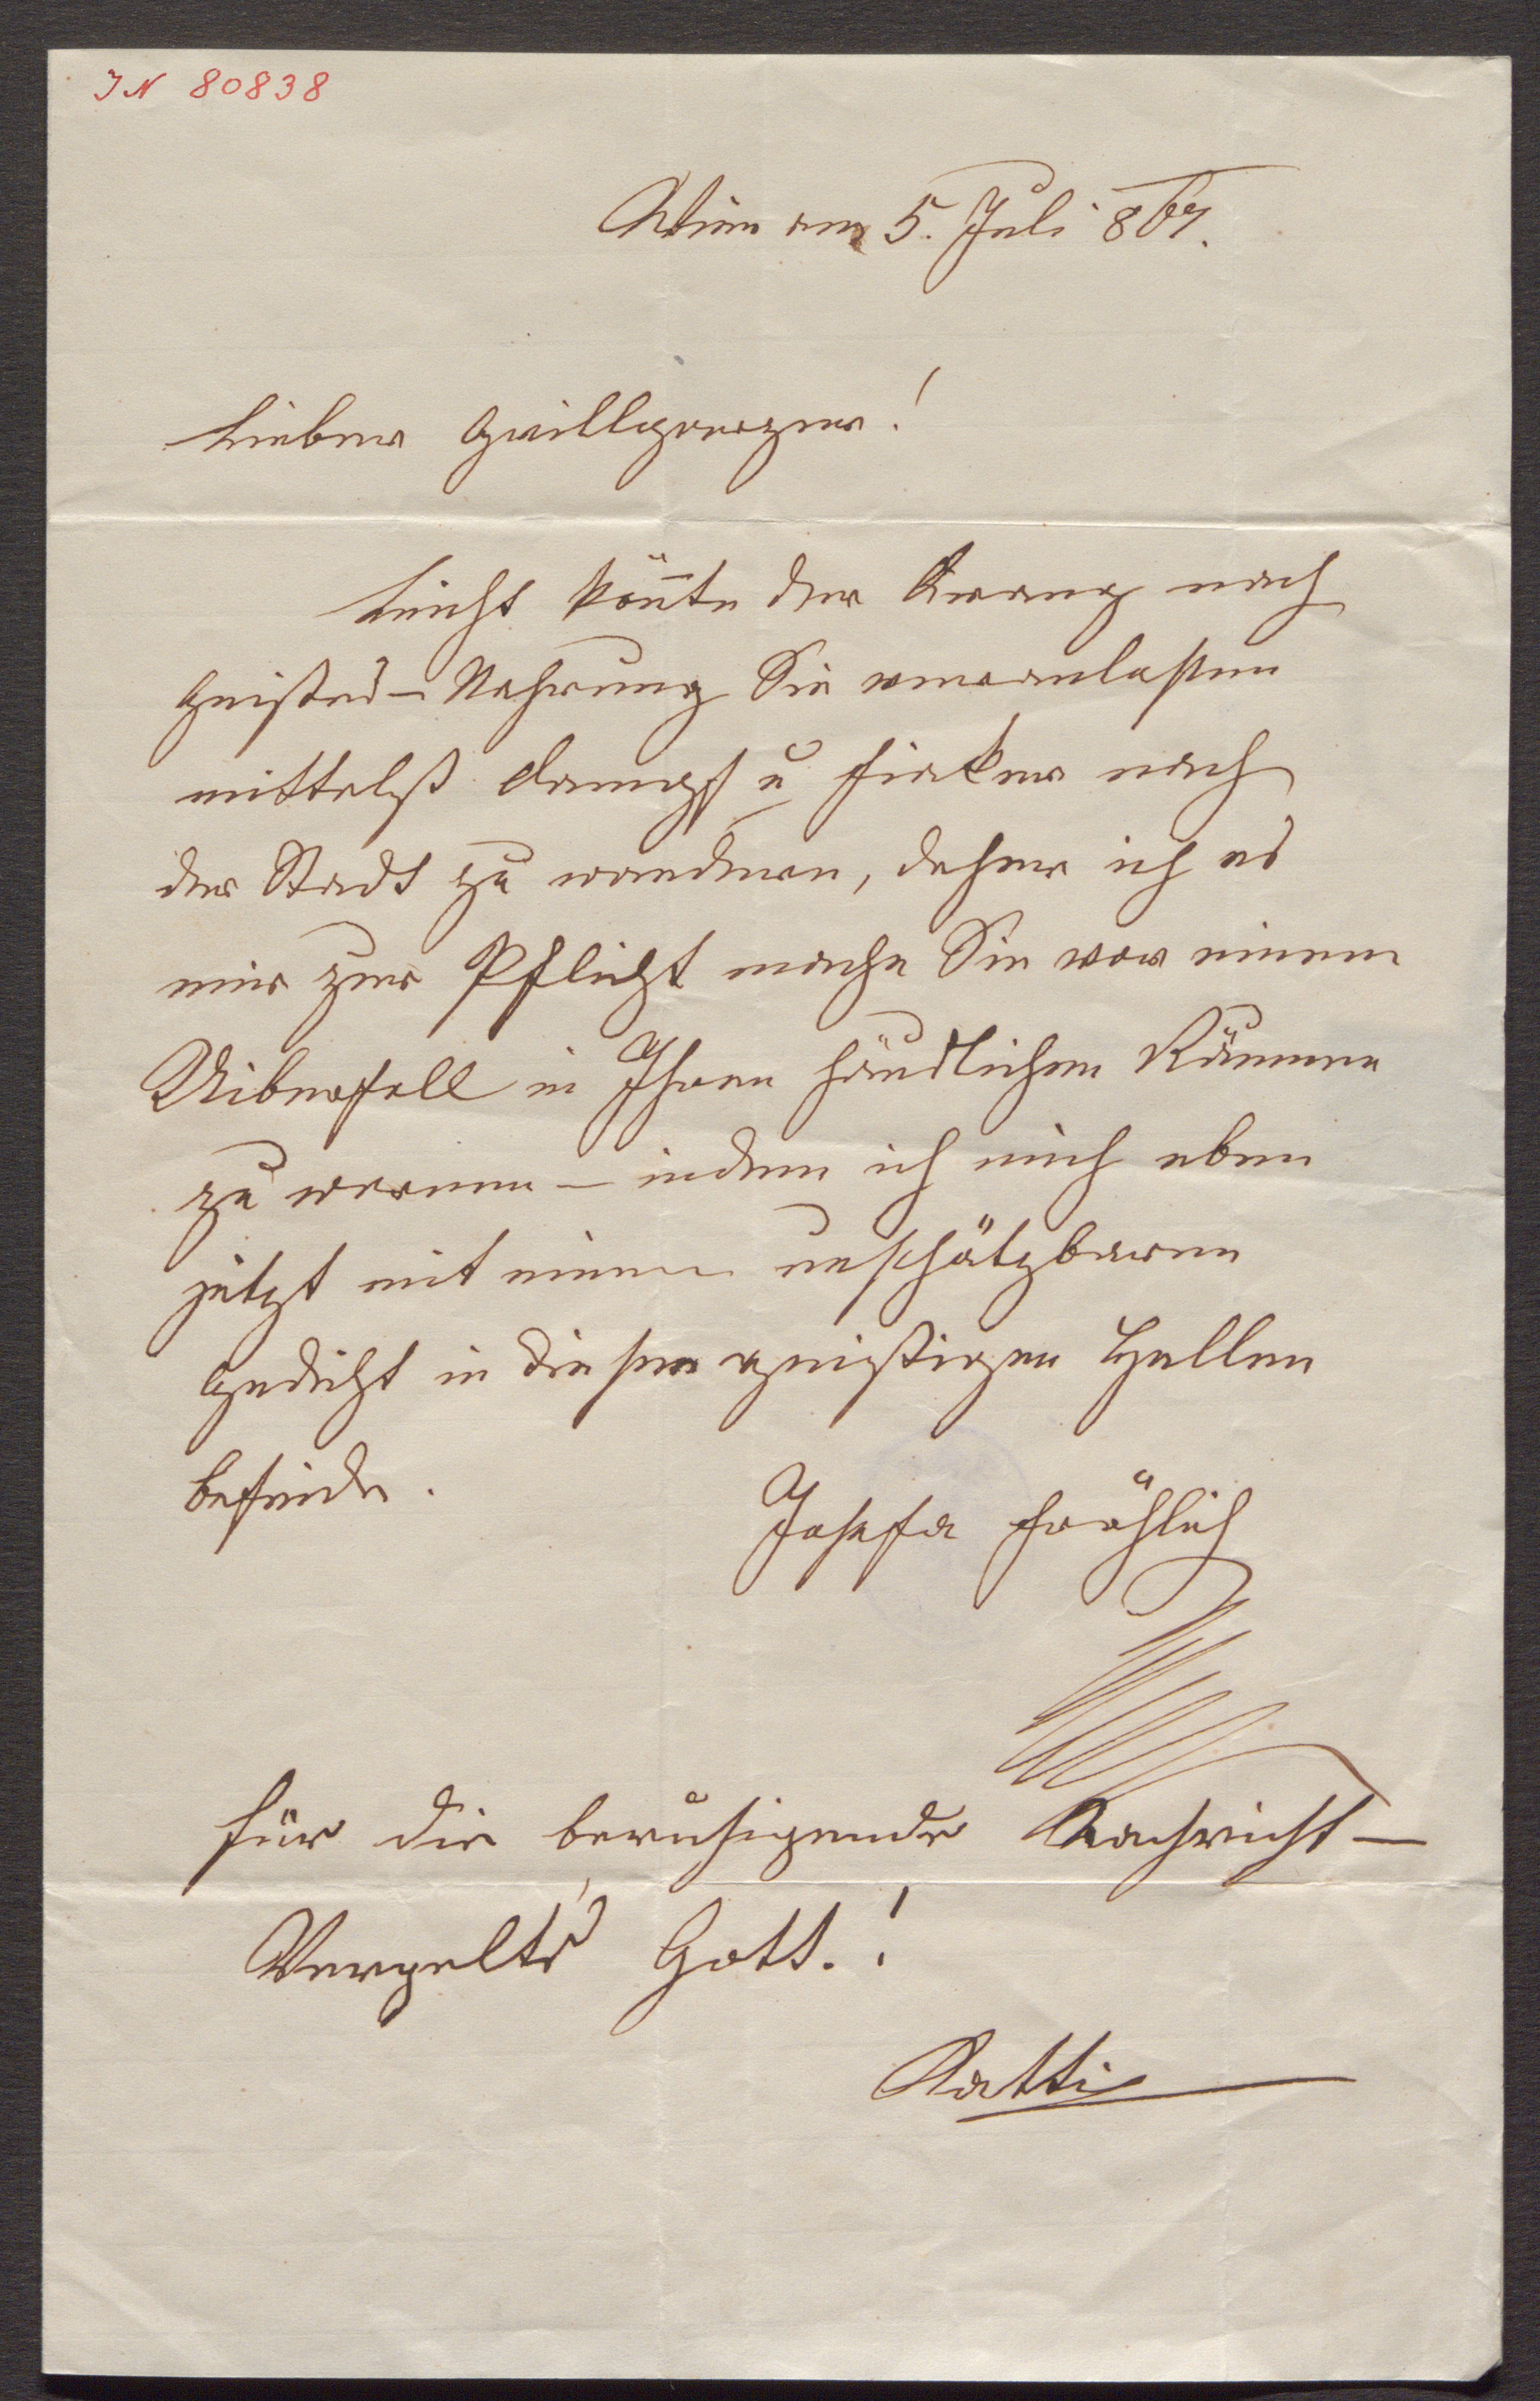 IN 80838
Wien am 5. Juli 867.
Lieber Grillparzer!
Leicht könnte der Drang nach
Geistes-Nahrung Sie veranlassen
mittelst Dampf u Fiaker nach
der Stadt zu wandern, daher ich es
mir zur Pflicht mache Sie vor einem
Uiberfall in Ihren häuslichen Räumen
zu warnen – indem ich mich eben
jetzt mit einem unschätzbaren
Gedicht in diesen geistigen Hallen
befinde.
Josefa Fröhlich
Für die beruhigende Nachricht –
Vergelts Gott.!
Katti